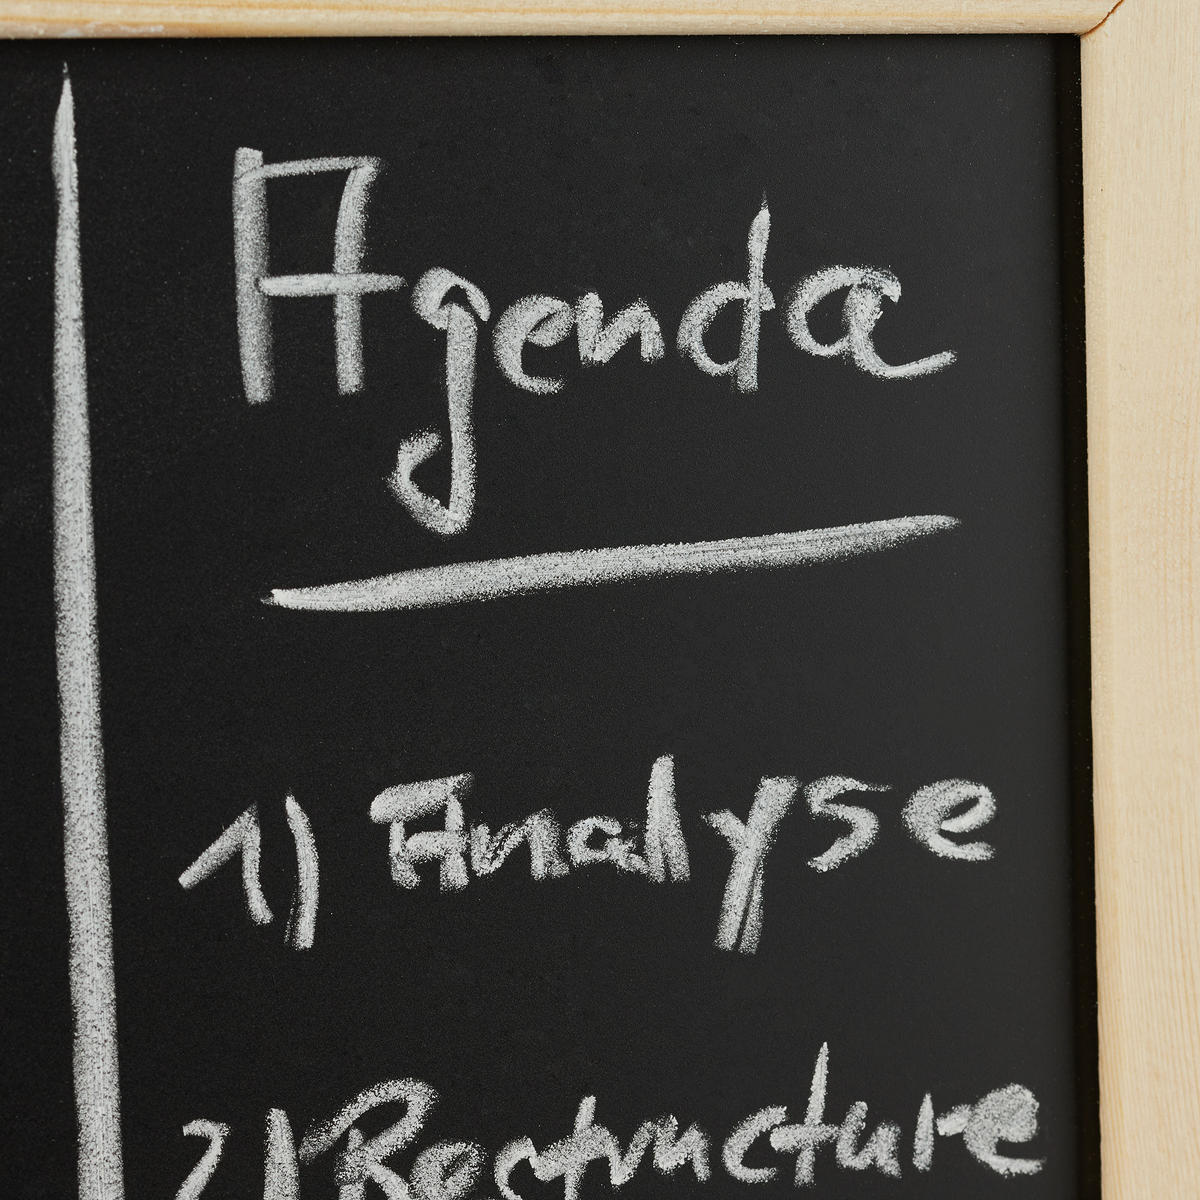 Agenda
1) Analyse
2) Restructure